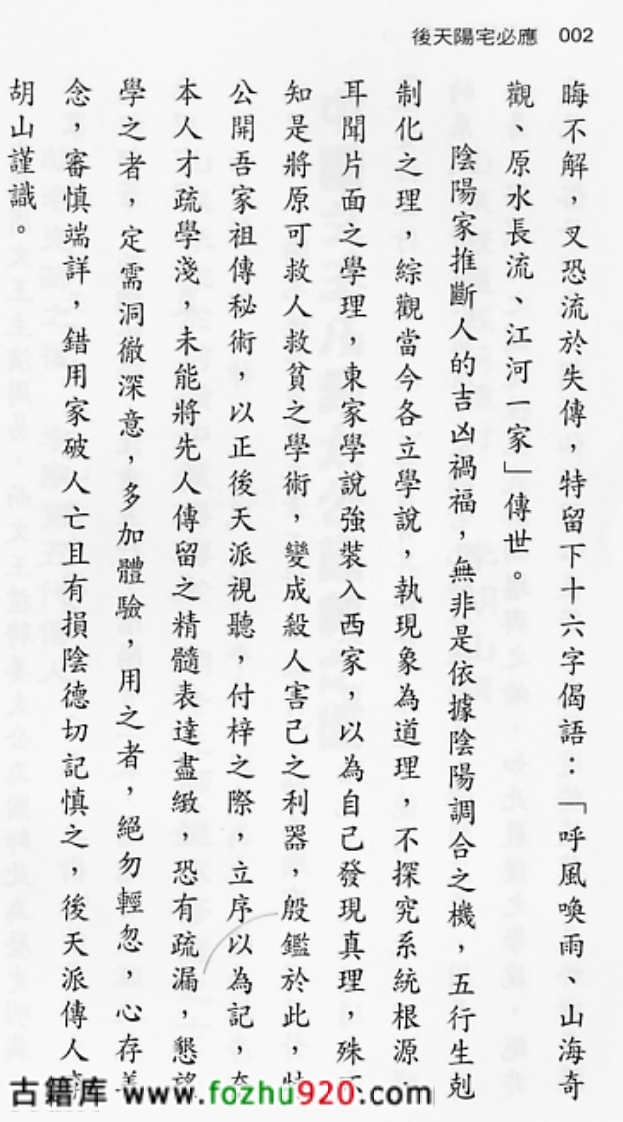 後天陽宅必應 002
晦不解，又恐流於失傳，特留下十六字偈語：「呼風喚雨、山海奇
觀、原水長流、江河一家」傳世。
陰陽家推斷人的吉凶禍福，無非是依據陰陽調合之機，五行生剋
制化之理，綜觀當今各立學說，執現象為道理，不探究系統根源，
耳聞片面之學理，東家學說強裝入西家，以為自己發現真理，殊不
知是將原可救人救貧之學術，變成殺人害己之利器，殷鑑於此，特
公開吾家祖傳秘術，以正後天派視聽，付梓之際，立序以為記，
本人才疏學淺，未能將先人傳留之精髓表達盡緻，恐有疏漏，懇望
學之者，定需洞徹深意，多加體驗，用之者，絕勿輕忽，心存善
念，審慎端詳，錯用家破人亡且有損陰德切記慎之，後天派傳人
胡山謹識。
古籍库 www.fozhu920.com